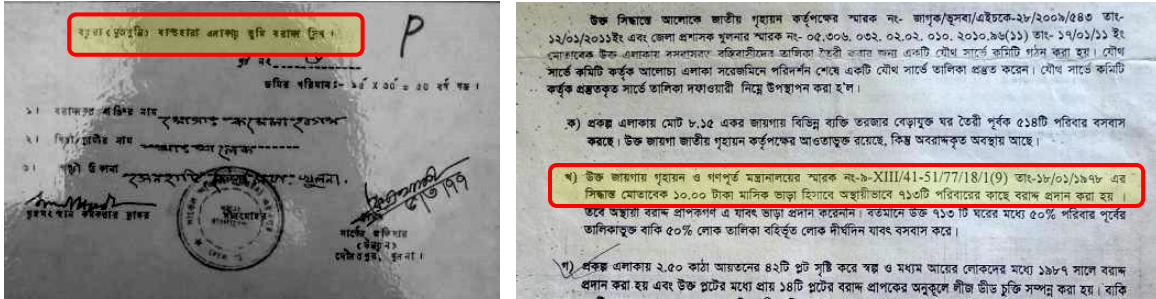 বাস্তুহারা এলাকায় ভূমি বরাদ্দ
P
জমির পরিমান:- ১৫ X ৩০ = ৫০ বর্গ গজ।
১। বরাদ্দকৃত ব্যক্তির নাম
২। পিতা/স্বামীর নাম
৩। ঠিকানা
খুলনা.
দৌলতপুর, খুলনা।
উক্ত সিদ্ধান্ত আলোকে জাতীয় গৃহায়ন কর্তৃপক্ষের স্মারক নং- জাগৃক/ভূসবা/এইচকে-২৮/২০০৯/৫৪৩ তাং-
১২/০১/২০১১ইং এবং জেলা প্রশাসক খুলনার স্মারক নং- ০৫.৩০৬. ০৩২. ০২.০২. ০১০. ২০১০.৯৬(১১) তাং- ১৭/০১/১১ ইং
মোতাবেক উক্ত এলাকায় বসবাসরত বস্তিবাসীদের তালিকা তৈরী করার জন্য একটি যৌথ সার্ভে কমিটি গঠন করা হয়। যৌথ
সার্ভে কমিটি কর্তৃক আলোচ্য এলাকা সরেজমিনে পরিদর্শন শেষে একটি যৌথ সার্ভে তালিকা প্রস্তুত করেন। যৌথ সার্ভে কমিটি
কর্তৃক প্রস্তুতকৃত সার্ভে তালিকা দফাওয়ারী নিম্নে উপস্থাপন করা হ'ল।
ক) প্রকল্প এলাকায় মোট ৮.১৫ একর জায়গায় বিভিন্ন ব্যক্তি তরজার বেড়াযুক্ত ঘর তৈরী পূর্বক ৫১৪টি পরিবার বসবাস
করছে। উক্ত জায়গা জাতীয় গৃহায়ন কর্তৃপক্ষের আওতাভূক্ত রয়েছে, কিন্তু অবরাদ্দকৃত অবস্থায় আছে।
খ) উক্ত জায়গায় গৃহায়ন ও গণপূর্ত মন্ত্রনালয়ের স্মারক নং-৯-XIII/41-51/77/18/1(9) তাং-১৮/০১/১৯৭৮ এর
সিদ্ধান্ত মোতাবেক ১০.০০ টাকা মাসিক ভাড়া হিসাবে অস্থায়ীভাবে ৭১৩টি পরিবারের কাছে বরাদ্দ প্রদান করা হয় ।
তবে অস্থায়ী বরাদ্দ প্রাপকগণ এ যাবৎ ভাড়া প্রদান করেননি। বর্তমানে উক্ত ৭১৩ টি ঘরের মধ্যে ৫০% পরিবার পূর্বের
তালিকাভূক্ত বাকি ৫০% লোক তালিকা বহির্ভূত লোক দীর্ঘদিন যাবৎ বসবাস করে।
গ) প্রকল্প এলাকায় ২.৫০ কাঠা আয়তনের ৪২টি প্লট সৃষ্টি করে স্বল্প ও মধ্যম আয়ের লোকদের মধ্যে ১৯৮৭ সালে বরাদ্দ
প্রদান করা হয় এবং উক্ত প্লটের মধ্যে প্রায় ১৪টি প্লটের বরাদ্দ প্রাপকের অনুকূলে লীজ ডীড চুক্তি সম্পন্ন করা হয়। বাকি